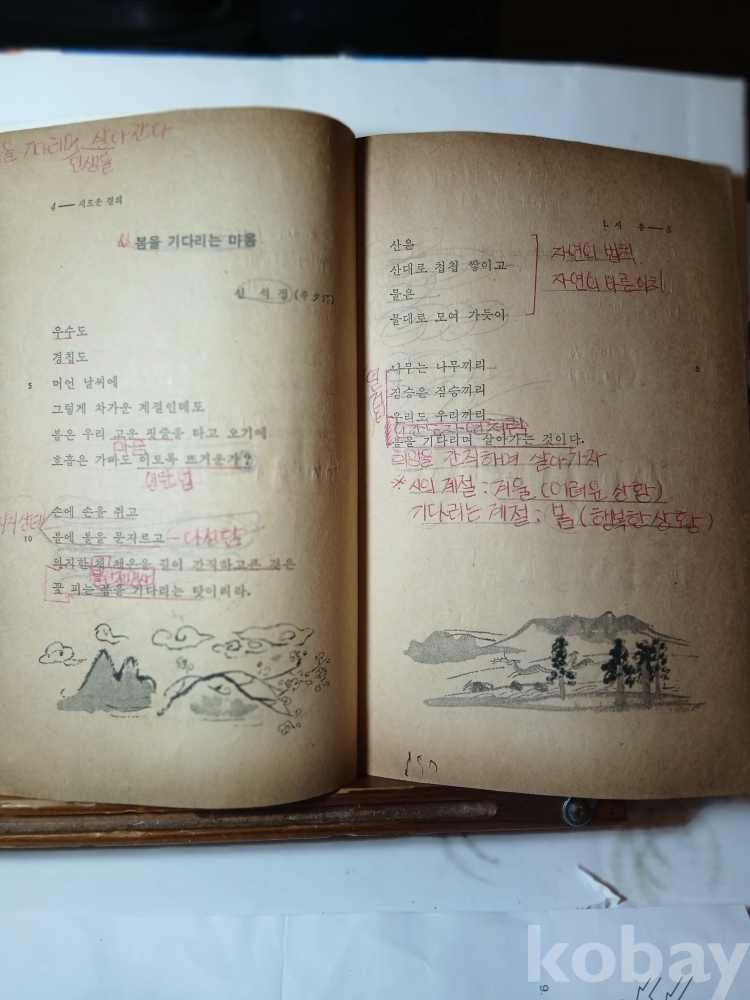 기다리며 살아간다
인생을
4 — 새로운 결의
봄을 기다리는 마음
신 석 정
우수도
경칩도
5 머언 날씨에
그렇게 차가운 계절인데도
봄은 우리 고운 핏줄을 타고 오기에
마음
호흡은 가빠도 이토록 뜨거운가?
영탄법
손에 손을 쥐고
10 볼에 볼을 문자르고 - 다정함
의지한 채 체온을 길이 간직하고픈 것은
꽃 피는 봄을 기다리는 탓이리라.
1. 새 봄 — 5
산은
산대로 첩첩 쌓이고
물은
물대로 모여 가듯이
자연의 법칙
자연의 바른 이치
나무는 나무끼리
5
짐승은 짐승끼리
우리도 우리끼리
봄을 기다리며 살아가는 것이다.
희망을 간직하며 살아가자
* 시의 계절 : 겨울 (어려운 상황)
기다리는 계절 : 봄 (행복한 상황)
kobay